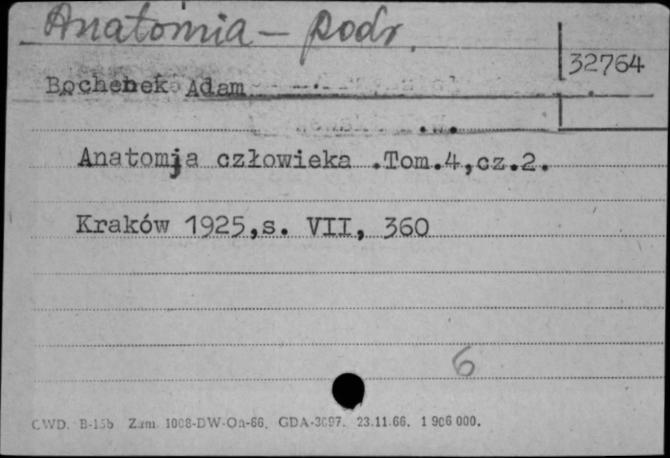 Anatomia – podr.
32764
Bochenek Adam
Anatomja człowieka .Tom.4,cz.2.
Kraków 1925,s. VII, 360
6
CWD. B-15b Zam. 1008-DW-Oa-66. GDA-3697. 23.11.66. 1 906 000.